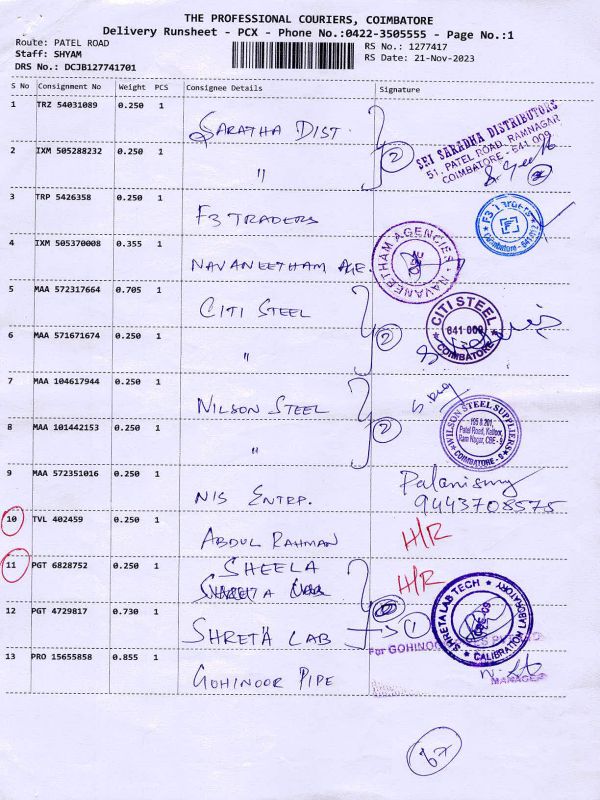 THE PROFESSIONAL COURIERS, COIMBATORE
Delivery Runsheet - PCX - Phone No.:0422-3505555 - Page No.:1
Route: PATEL ROAD
Staff: SHYAM
DRS No.: DCJB127741701
RS No.: 1277417
RS Date: 21-Nov-2023
S No Consignment No Weight PCS Consignee Details Signature
1 TRZ 54031089 0.250 1 SARATHA DIST.
SRI SARADHA DISTRIBUTORS
51, PATEL ROAD, RAMNAGAR
COIMBATORE - 641 009
2 IXM 505288232 0.250 1 " 2
3 TRP 5426358 0.250 1 F3 TRADERS
F3 Traders
Coimbatore - 641 012
4 IXM 505370008 0.355 1 NAVANEETHAM AGE.
NAVANEETHAM AGENCIES
5 MAA 572317664 0.705 1 CITI STEEL
CITI STEEL
641 009
COIMBATORE
6 MAA 571671674 0.250 1 " 2
7 MAA 104617944 0.250 1 NILSON STEEL
WILSON STEEL SUPPLIERS
Patel Road, Kattoor,
Ram Nagar, CBE - 9
COIMBATORE - 9
8 MAA 101442153 0.250 1 " 2
9 MAA 572351016 0.250 1 NIS ENTRP.
Palanisamy
9443708575
10 TVL 402459 0.250 1 ABDUL RAHMAN H/R
11 PGT 6828752 0.250 1 SHEELA H/R
12 PGT 4729817 0.730 1 SHRETA LAB 1
SHRETA LAB TECH
CALIBRATION LABORATORY
13 PRO 15655858 0.855 1 GOHINOOR PIPE
For GOHINOOR
MANAGER